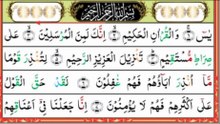 بِسْمِ اللَّهِ الرَّحْمَٰنِ الرَّحِيمِ
يٰسٓ ۝ وَالْقُرْاٰنِ الْحَكِيْمِ ۝ اِنَّكَ لَمِنَ الْمُرْسَلِيْنَ ۝ عَلٰى
صِرَاطٍ مُّسْتَقِيْمٍ ۝ تَنْزِيْلَ الْعَزِيْزِ الرَّحِيْمِ ۝ لِتُنْذِرَ قَوْمًا
مَّآ اُنْذِرَ اٰبَآؤُهُمْ فَهُمْ غٰفِلُوْنَ ۝ لَقَدْ حَقَّ الْقَوْلُ
عَلٰٓى اَكْثَرِهِمْ فَهُمْ لَا يُؤْمِنُوْنَ ۝ اِنَّا جَعَلْنَا فِيْٓ اَعْنَاقِهِمْ